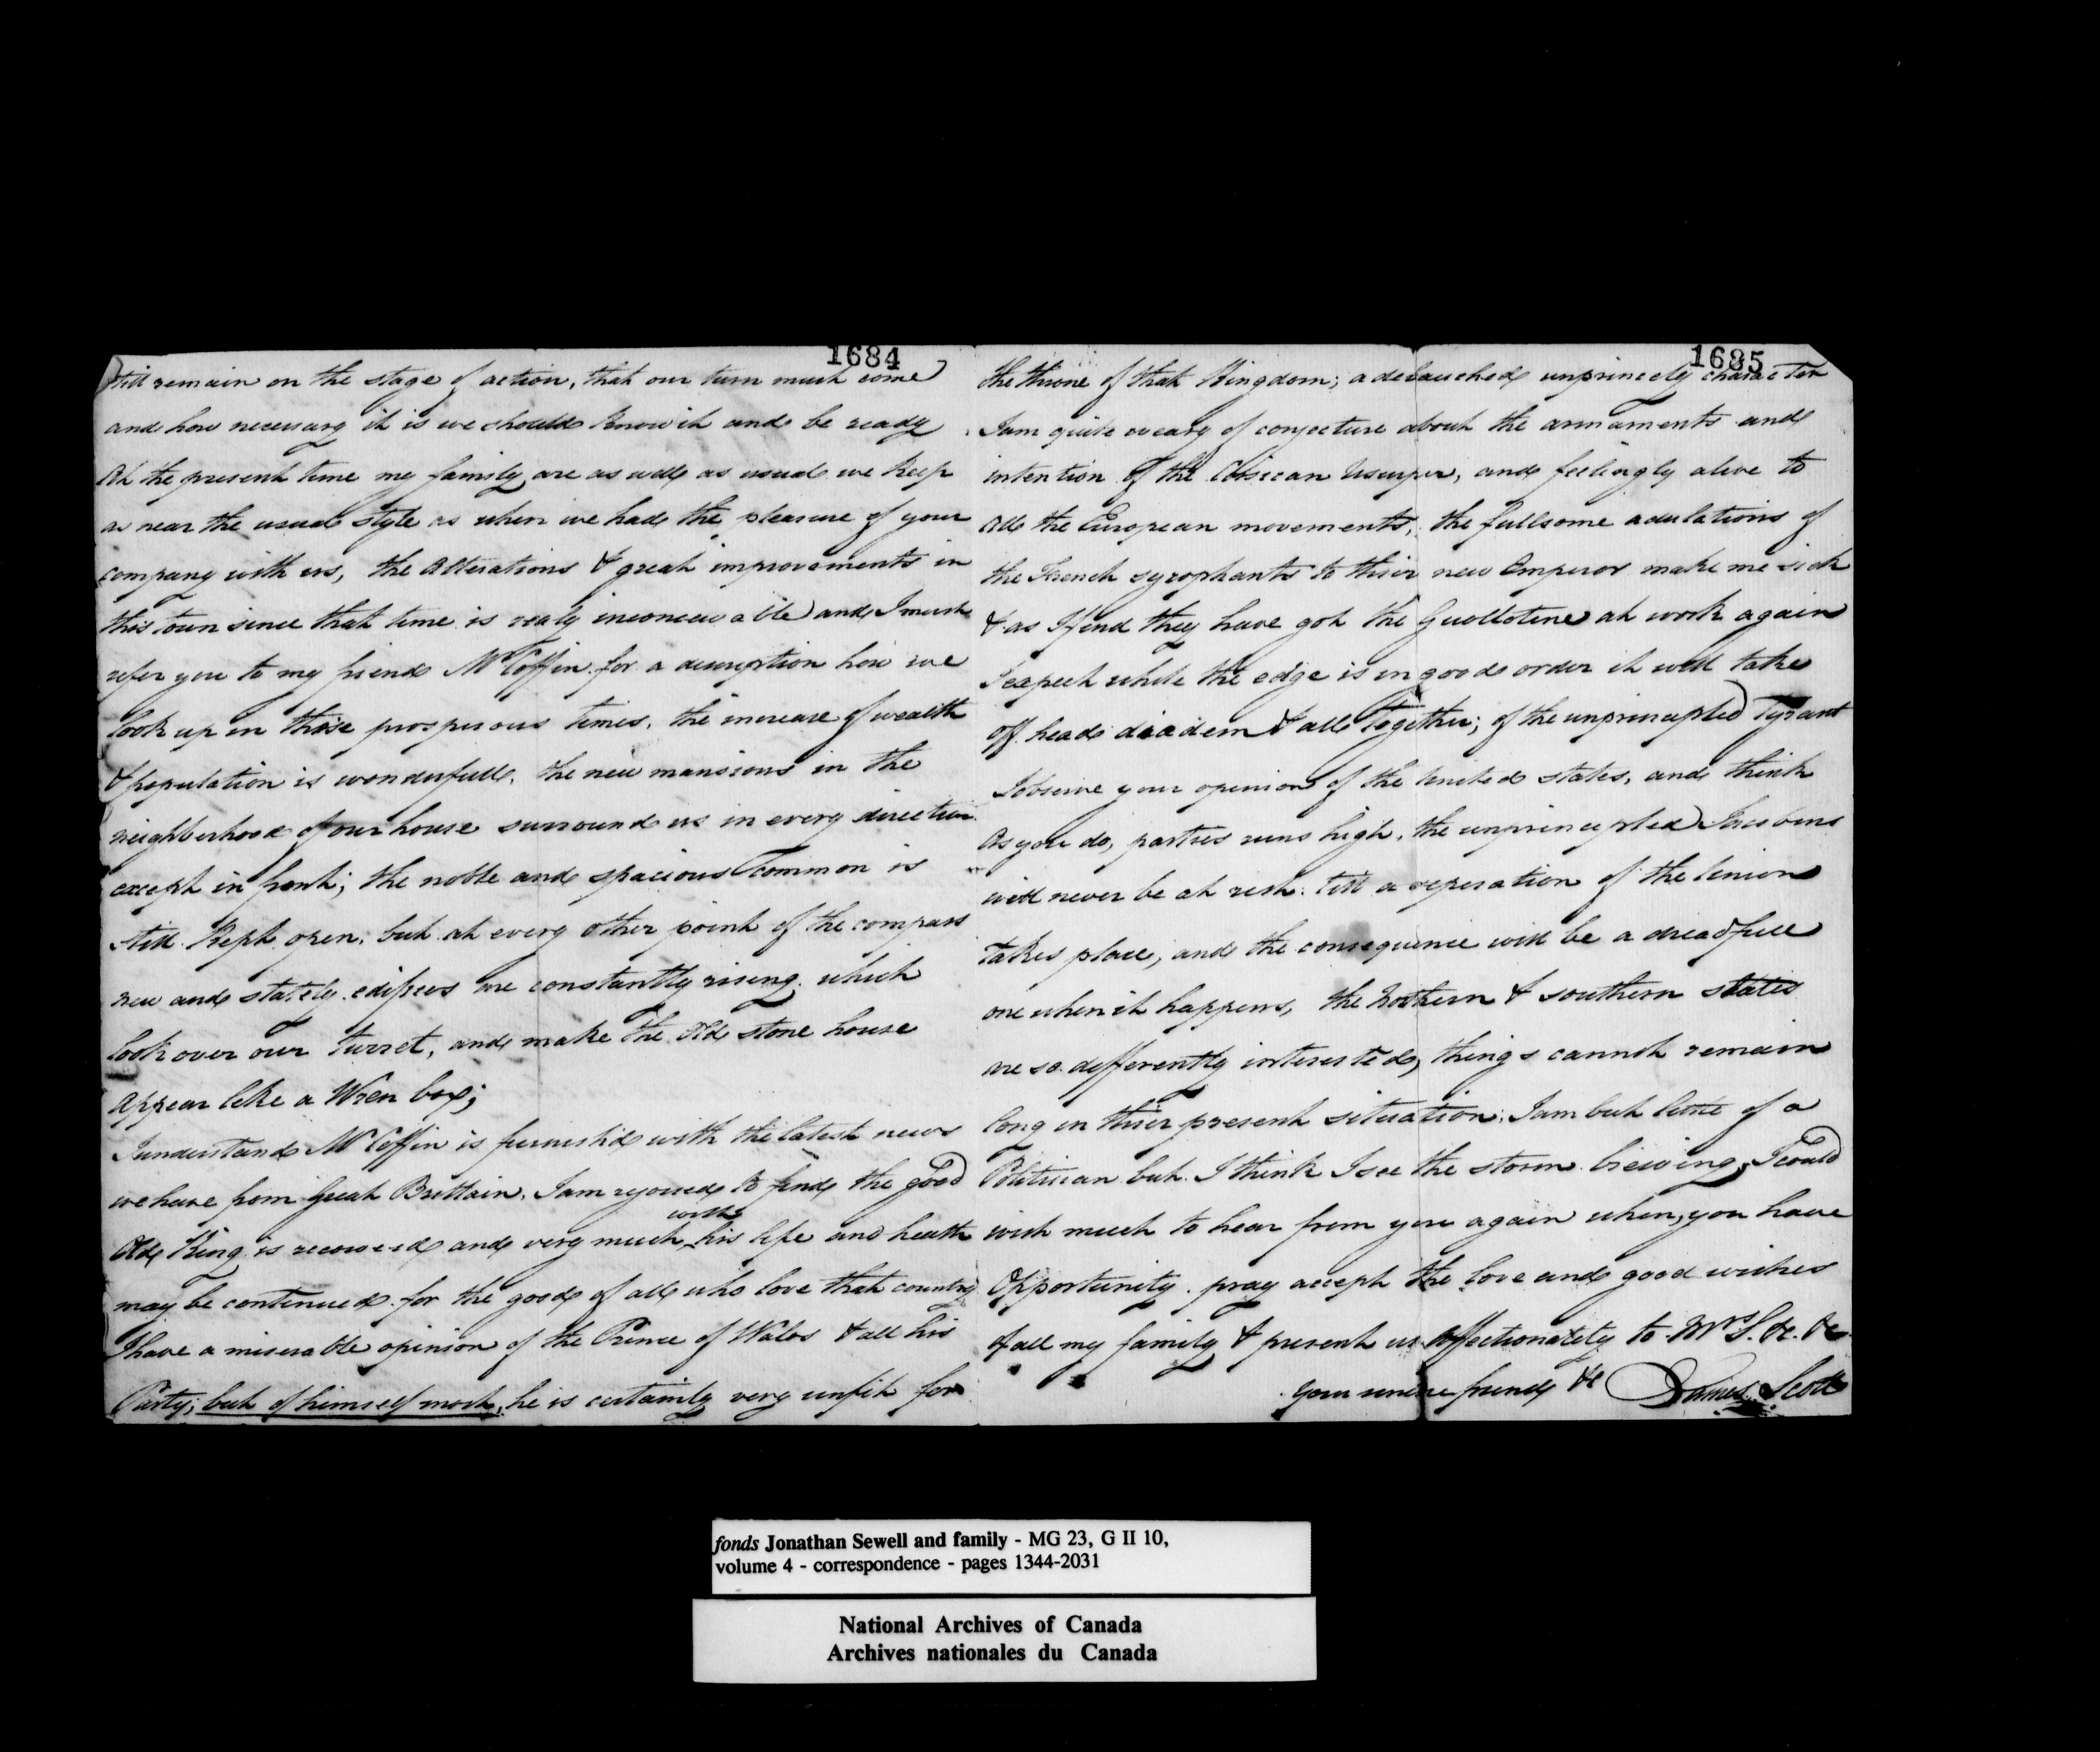 1684
still remain on the stage of action, that our turn must come
and how necessary it is we should know it and be ready
At the present time my family are as well as usual we keep
as near the usual style as when we had the pleasure of your
company with us, the Alterations & great improvements in
this town since that time is realy inconceivable and I must
refer you to my friend Mr Coffin for a discription how we
look up in these prosperous times, the increase of wealth
& population is wonderfull, the new mansions in the
neighborhood of our house surround us in every direction
except in front; the noble and spacious Common is
still kept open, but at every other point of the compass
new and stately edifices are constantly rising which
look over our turret, and make the Old stone house
appear like a Wren box;
I understand Mr Coffin is furnish'd with the latest news
we have from Great Brittain. I am rejoiced to find the good
Old King is recovered and very much wish his life and health
may be continued for the good of all who love that country
I have a miserable opinion of the Prince of Wales & all his
Party; but of himself most, he is certainly very unfit for
1685
the throne of that Kingdom; a debauched unprincely character
I am quite weary of conjecture about the armaments and
intention of the Corsican Usurper, and feelingly alive to
all the European movements, the fullsome adulations of
the French sycophants to thier new Emperor make me sick
& as I find they have got the Guollotine at work again
I expect while the edge is in good order it will take
off head diadem & all Together; of the unprincipled Tyrant
I observe your opinion of the United states, and think
as you do, parties runs high, the unprincipled Jacobins
will never be at rest till a seperation of the Union
takes place, and the consequence will be a dreadfull
one when it happens, the Northern & southern states
are so differently interested, things cannot remain
long in thier present situation, I am but little of a
Politician but I think I see the storm brewing, I could
wish much to hear from you again when you have
Opportunity. pray accept the love and good wishes
of all my family & present us Affectionately to Mrs S. &c. &c
your sincere friend &c James Scott
fonds Jonathan Sewell and family - MG 23, G II 10,
volume 4 - correspondence - pages 1344-2031
National Archives of Canada
Archives nationales du Canada